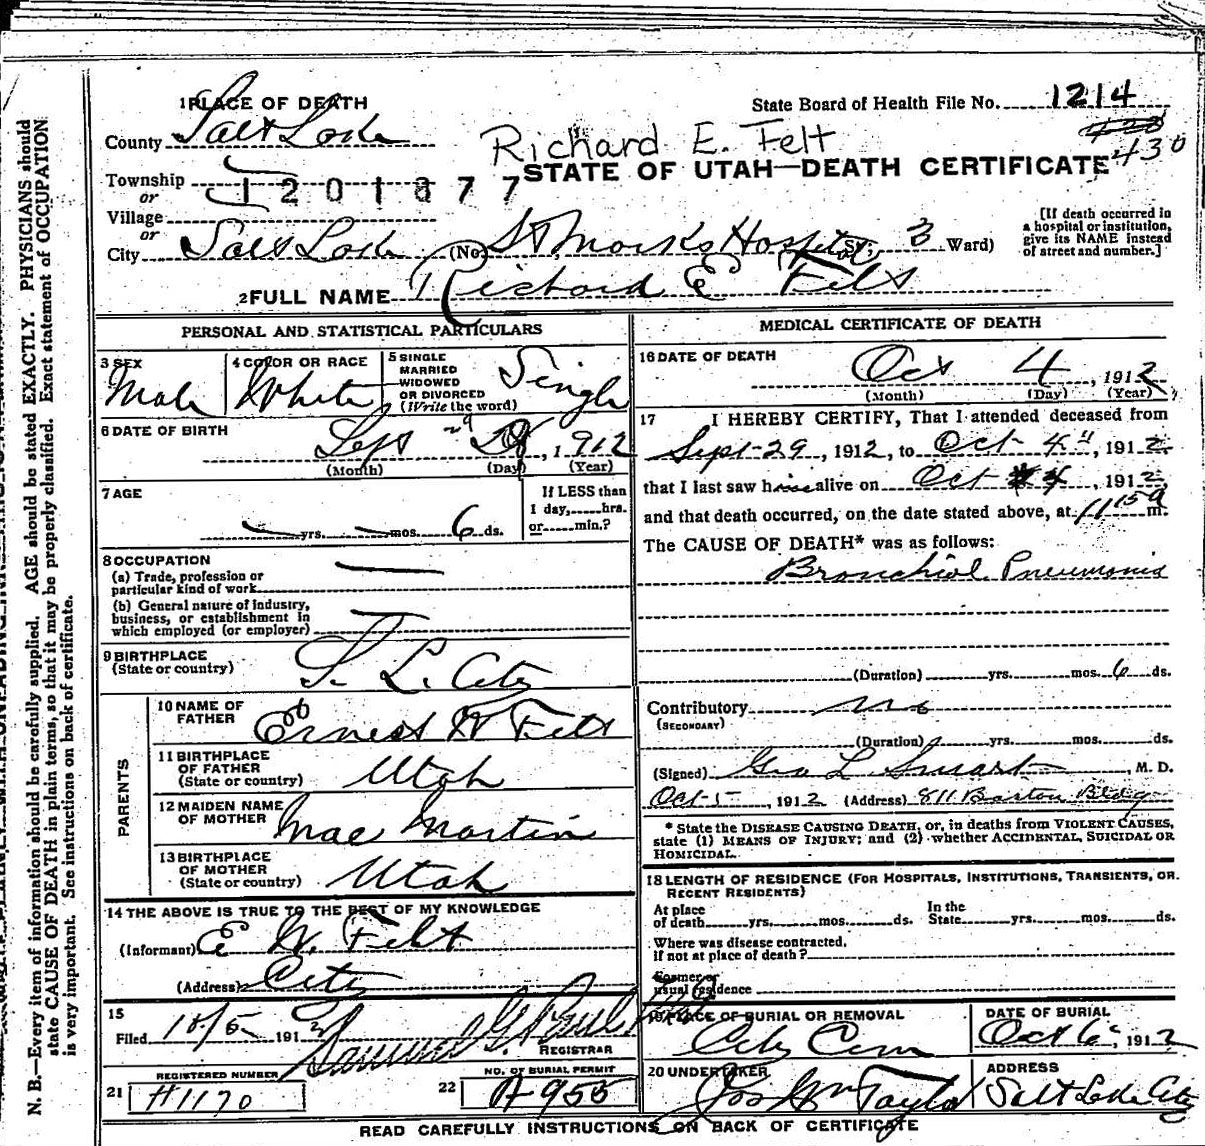 1 PLACE OF DEATH
State Board of Health File No. 1214
County Salt Lake
Richard E. Felt
430
STATE OF UTAH—DEATH CERTIFICATE
Township
1201877
or
Village
or
City Salt Lake (No. St. Marks Hospital St.; 3 Ward)
[If death occurred in
a hospital or institution,
give its NAME instead
of street and number.]
2 FULL NAME Richard E Felt
PERSONAL AND STATISTICAL PARTICULARS
3 SEX
Male
4 COLOR OR RACE
White
5 SINGLE
MARRIED
WIDOWED
OR DIVORCED
(Write the word)
Single
6 DATE OF BIRTH
Sept 29, 1912
(Month) (Day) (Year)
7 AGE
yrs. mos. 6 ds.
If LESS than
1 day, hrs.
or min.?
8 OCCUPATION
(a) Trade, profession or
particular kind of work
(b) General nature of industry,
business, or establishment in
which employed (or employer)
9 BIRTHPLACE
(State or country)
S. L. City
PARENTS
10 NAME OF
FATHER
Ernest W Felt
11 BIRTHPLACE
OF FATHER
(State or country)
Utah
12 MAIDEN NAME
OF MOTHER
Mae Martin
13 BIRTHPLACE
OF MOTHER
(State or country)
Utah
14 THE ABOVE IS TRUE TO THE BEST OF MY KNOWLEDGE
(Informant) E W. Felt
(Address) City
15
Filed 10/5 1912
Samuel G. Paul
REGISTRAR
REGISTERED NUMBER
21 H1170
NO. OF BURIAL PERMIT
22 A-955
MEDICAL CERTIFICATE OF DEATH
16 DATE OF DEATH
Oct 4, 1912
(Month) (Day) (Year)
17 I HEREBY CERTIFY, That I attended deceased from
Sept-29, 1912, to Oct 4, 1912
that I last saw him alive on Oct 4, 1912,
and that death occurred, on the date stated above, at 11 15 a m.
The CAUSE OF DEATH* was as follows:
Bronchial Pneumonia
(Duration) yrs. mos. 6 ds.
Contributory no
(SECONDARY)
(Duration) yrs. mos. ds.
(Signed) Geo L Smart, M. D.
Oct-5, 1912 (Address) 811 Boston Bldg
* State the DISEASE CAUSING DEATH, or, in deaths from VIOLENT CAUSES,
state (1) MEANS OF INJURY; and (2) whether ACCIDENTAL, SUICIDAL OR
HOMICIDAL.
18 LENGTH OF RESIDENCE (FOR HOSPITALS, INSTITUTIONS, TRANSIENTS, OR
RECENT RESIDENTS)
At place
of death yrs. mos. ds.
In the
State yrs. mos. ds.
Where was disease contracted,
if not at place of death?
Former or
usual residence
19 PLACE OF BURIAL OR REMOVAL
City Cem
DATE OF BURIAL
Oct 6, 1912
20 UNDERTAKER
Jos Wm Taylor
ADDRESS
Salt Lake City
READ CAREFULLY INSTRUCTIONS ON BACK OF CERTIFICATE
N. B.—Every item of information should be carefully supplied. AGE should be stated EXACTLY. PHYSICIANS should
state CAUSE OF DEATH in plain terms, so that it may be properly classified. Exact statement of OCCUPATION
is very important. See instructions on back of certificate.